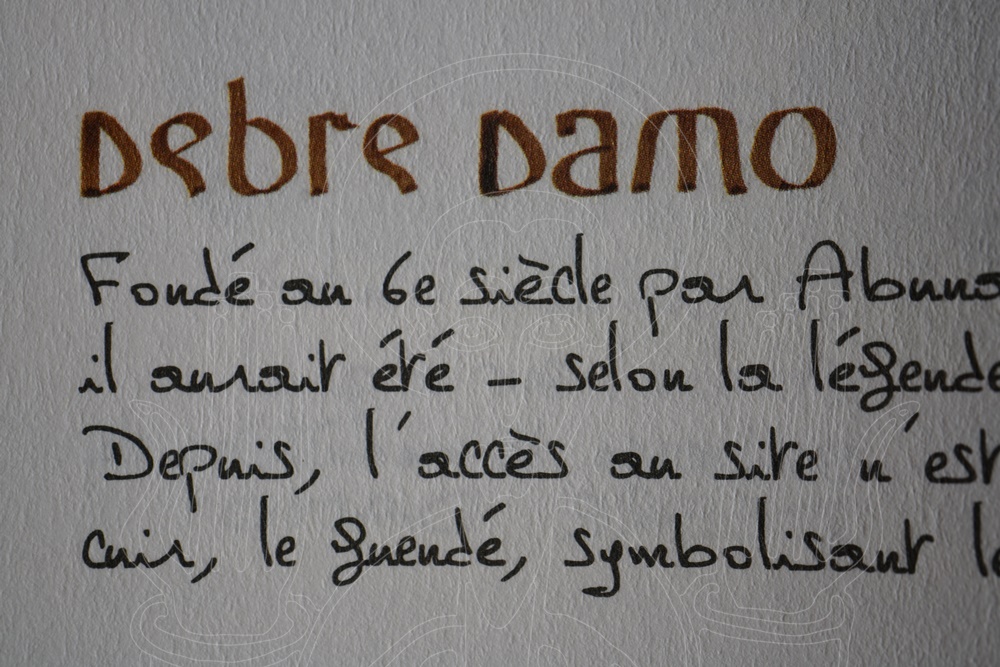 Debre Damo
Fondé au 6e siècle par Abuna
il aurait été – selon la légende
Depuis, l'accès au site n'est
cuir, le guendé, symbolisant